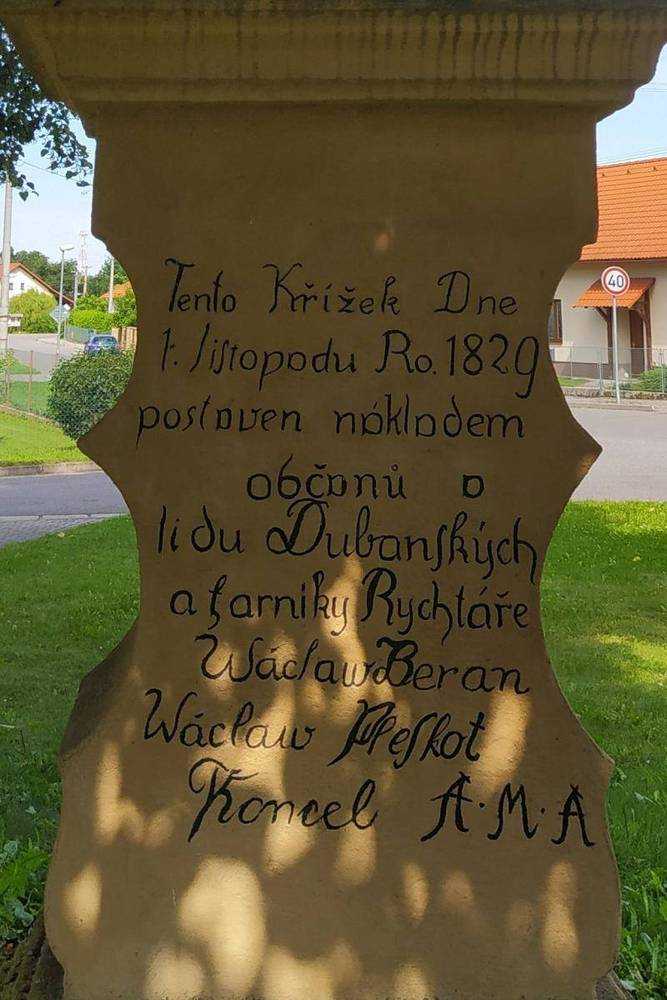 Tento Křížek Dne
1. listopodu Ro. 1829
postaven nákladem
občanů a
lidu Dubanſkých
a farniky Rychtáře
Wáclaw Beran
Wáclaw Pleſkot
Koncel A·M·A
40